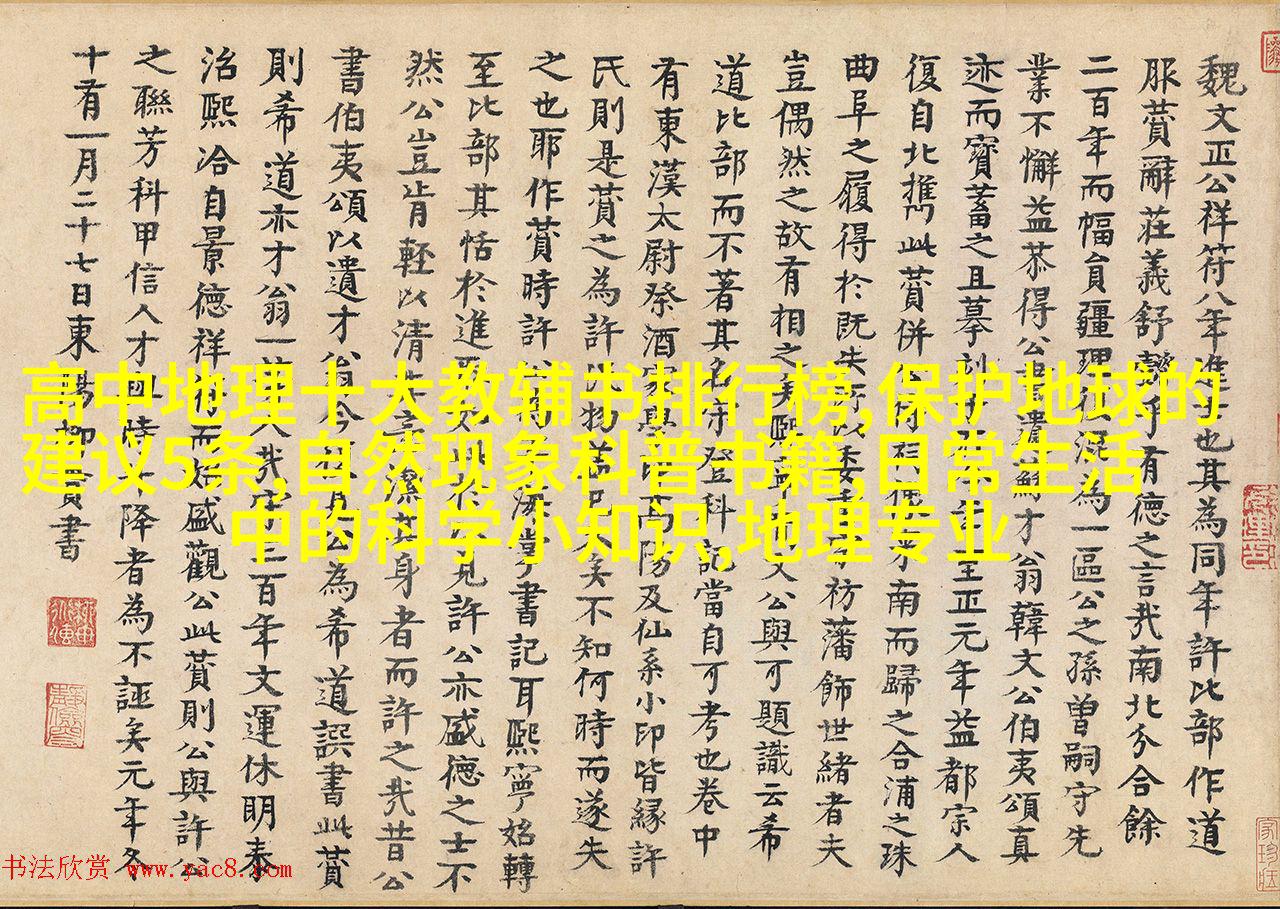 魏文正公祥符八年進士也其為同年許比部作道
服贊辭莊義舒藹乎有德之言哉南北分合餘
二百年而幅員疆理復混為一區公之孫曾嗣守先
業不懈益恭得公書蘇才翁韓文公伯夷頌真
迹而寶蓄之且摹刻至正元年益都宗人
復自北攜此贊併南而歸之合浦之珠
曲阜之履得於既失所以委祊藩飾世緒者夫
豈偶然之故有相之矣熙文公與可題識云希
道比部而不著其名守登科記當自可考也卷中
有東漢太尉祭酒家學高陽及仙系小印皆緣許
氏則是贊之為許物矣不知何時而遂失
之也耶作贊時許書記耳熙寧始轉
至比部其恬於進見許公亦盛德之士不
然公豈肯輕以清身者而許之哉昔公
書伯夷頌以遺才翁今公為希道譔書此贊
則希道亦才翁一人哉二百年文運休明泰
治熙洽自景德祥符而始盛觀公此贊則公與許公
之聯芳科甲信人才時降者為不誣矣元年冬
十有一月二十七日東陽柳貫書
高中地理十大教辅书排行榜,保护地球的
建议5条,自然现象科普书籍,日常生活
中的科学小知识,地理专业
书法欣赏 www.yac8.com